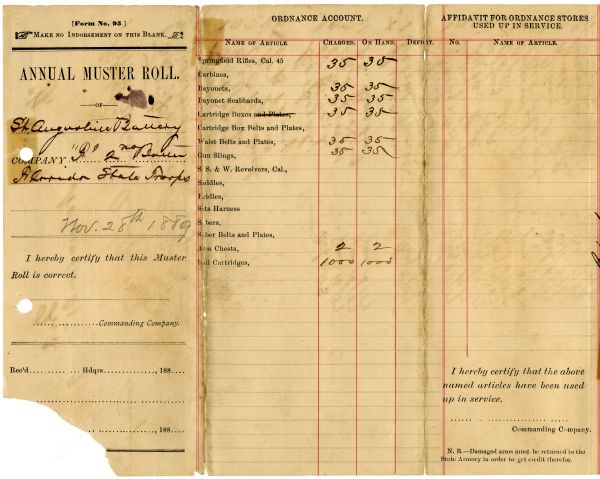 [Form No. 95]
MAKE NO INDORSEMENT ON THIS BLANK.
ANNUAL MUSTER ROLL.
OF
St. Augustine Battery
COMPANY
State Troops
Nov. 28th 1889
I hereby certify that this Muster
Roll is correct.
Commanding Company.
Rec'd Hdqrs. 188
188
ORDNANCE ACCOUNT.
NAME OF ARTICLE. CHARGED. ON HAND. DEFICIT.
Springfield Rifles, Cal. 45 35 35
Carbines,
Bayonets, 35 35
Bayonet Scabbards, 35 35
Cartridge Boxes and Plates, 35 35
Cartridge Box Belts and Plates,
Waist Belts and Plates, 35 35
Gun Slings, 35 35
S. S. & W. Revolvers, Cal.,
Saddles,
Bridles,
Sets Harness
Sabers,
Saber Belts and Plates,
Arm Chests, 2 2
Ball Cartridges, 1000 1000
AFFIDAVIT FOR ORDNANCE STORES
USED UP IN SERVICE.
No. NAME OF ARTICLE.
I hereby certify that the above
named articles have been used
up in service.
Commanding Company.
N. B.—Damaged arms must be returned to the
State Armory in order to get credit therefor.